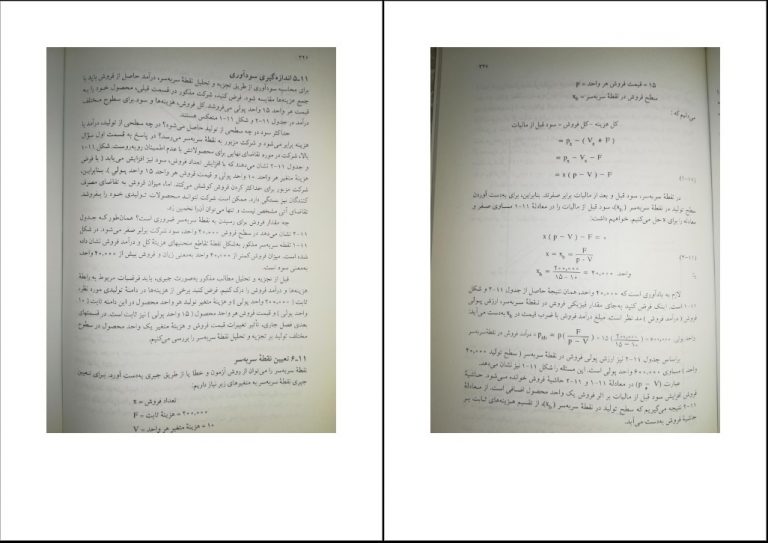 ۳۲۶
۱۱-۵ اندازه‌گیری سودآوری
برای محاسبه سودآوری از طریق تجزیه و تحلیل نقطهٔ سربه‌سر، درآمد حاصل از فروش باید با
جمع هزینه‌ها مقایسه شود. فرض کنید، شرکت مذکور در قسمت قبلی، محصول خود را به
قیمت هر واحد ۱۵ واحد پولی می‌فروشد. کل فروش، هزینه‌ها و سود برای سطوح مختلف
درآمد در جدول ۲-۱۱ و شکل ۱-۱۱ منعکس هستند.
حداکثر سود در چه سطحی از تولید حاصل می‌شود؟ در چه سطحی از تولید، درآمد با
هزینه برابر می‌شود و شرکت مزبور به نقطهٔ سربه‌سر می‌رسد؟ در پاسخ به قسمت اول سؤال
بالا، شرکت در مورد تقاضای نهایی برای محصولاتش با عدم اطمینان روبه‌روست. شکل ۱-۱۱
و جدول ۲-۱۱ نشان می‌دهند که با افزایش تعداد فروش، سود نیز افزایش می‌یابد ( با فرض
هزینهٔ متغیر هر واحد ۱۰ واحد پولی و قیمت فروش هر واحد ۱۵ واحد پولی ). بنابراین،
شرکت مزبور برای حداکثر کردن فروش کوشش می‌کند. اما، میزان فروش به تقاضای مصرف
کنندگان نیز بستگی دارد. ممکن است شرکت نتواند محصولات تولیدی خود را بفروشد.
تقاضای آتی مشخص نیست و تنها می‌توان آن‌را تخمین زد.
چه مقدار فروش برای رسیدن به نقطهٔ سربه‌سر ضروری است؟ همان‌طور که جدول
۲-۱۱ نشان می‌دهد در سطح فروش ۴۰,۰۰۰ واحد، سود شرکت برابر صفر می‌شود. در شکل
۱-۱۱ نقطه سربه‌سر مذکور به‌شکل نقطهٔ تقاطع منحنیهای هزینهٔ کل و درآمد فروش نشان داده
شده است. میزان فروش کمتر از ۴۰,۰۰۰ واحد به‌معنی زیان و فروش بیش از ۴۰,۰۰۰ واحد،
به‌معنی سود است.
قبل از تجزیه و تحلیل مطالب مذکور به‌صورت جبری، باید فرضیات مربوط به رابطهٔ
هزینه‌ها و درآمد فروش را درک کنیم. فرض کنید برخی از هزینه‌ها در دامنهٔ تولیدی مورد نظر،
ثابت ( ۲۰۰,۰۰۰ واحد پولی ) و هزینهٔ متغیر تولید هر واحد محصول در این دامنه ثابت ( ۱۰
واحد پولی ) و قیمت فروش هر واحد محصول ( ۱۵ واحد پولی ) نیز ثابت است. در قسمتهای
بعدی فصل جاری، تأثیر تغییرات قیمت فروش و هزینهٔ متغیر یک واحد محصول در سطوح
مختلف تولید بر تجزیه و تحلیل نقطهٔ سربه‌سر را بررسی می‌کنیم.
۱۱-۶ تعیین نقطهٔ سربه‌سر
نقطهٔ سربه‌سر را می‌توان از روش آزمون و خطا یا از طریق جبری به‌دست آورد. برای تعیین
جبری نقطهٔ سربه‌سر به متغیرهای زیر نیاز داریم.
تعداد فروش = x
۲۰۰,۰۰۰ = هزینهٔ ثابت = F
۱۰ = هزینهٔ متغیر هر واحد = V
۱۵ = قیمت فروش هر واحد = P
سطح فروش در نقطهٔ سربه‌سر = x
می‌دانیم که :
کل هزینه - کل فروش = سود قبل از مالیات
= p
= x ( p – V ) – F
در نقطهٔ سربه‌سر، سود قبل و بعد از مالیات برابر صفرند. بنابراین، برای به‌دست آوردن
سطح تولید در نقطهٔ سربه‌سر (x)، سود قبل از مالیات را در معادلهٔ ۱-۱۱ مساوی صفر و
معادله را برای x حل می‌کنیم. خواهیم داشت:
x ( p – V ) – F = ۰
x = x = F / (p - V)
x = ۲۰۰,۰۰۰ / (۱۵ – ۱۰) = ۴۰,۰۰۰ واحد
لازم به یادآوری است که ۴۰,۰۰۰ واحد، همان نتیجهٔ حاصل از جدول ۲-۱۱ و شکل
۱-۱۱ است. اینک فرض کنید به‌جای مقدار فیزیکی فروش در نقطهٔ سربه‌سر، ارزش پولی
فروش ( درآمد فروش ) مد نظر است. مبلغ درآمد فروش با ضرب قیمت در x به‌دست می‌آید:
درآمد فروش در نقطهٔ سربه‌سر = p( F / (p – V) ) = ۱۵ ( ۲۰۰,۰۰۰ / (۱۵ – ۱۰) ) = ۶۰۰,۰۰۰ واحد پولی
براساس جدول ۲-۱۱ نیز ارزش پولی فروش در نقطهٔ سربه‌سر ( سطح تولید ۴۰,۰۰۰
واحد ) مساوی ۶۰۰,۰۰۰ واحد پولی است. این مسئله را شکل ۱-۱۱ نیز نشان می‌دهد.
عبارت (p – V) در معادلهٔ ۱-۱۱ و ۲-۱۱ حاشیهٔ فروش خوانده می‌شود. حاشیهٔ
فروش افزایش سود قبل از مالیات بر اثر فروش یک واحد محصول اضافی است. از معادلهٔ
۲-۱۱ نتیجه می‌گیریم که سطح تولید در نقطهٔ سربه‌سر (x)، از تقسیم هزینه‌های ثابت بر
حاشیهٔ فروش به‌دست می‌آید.